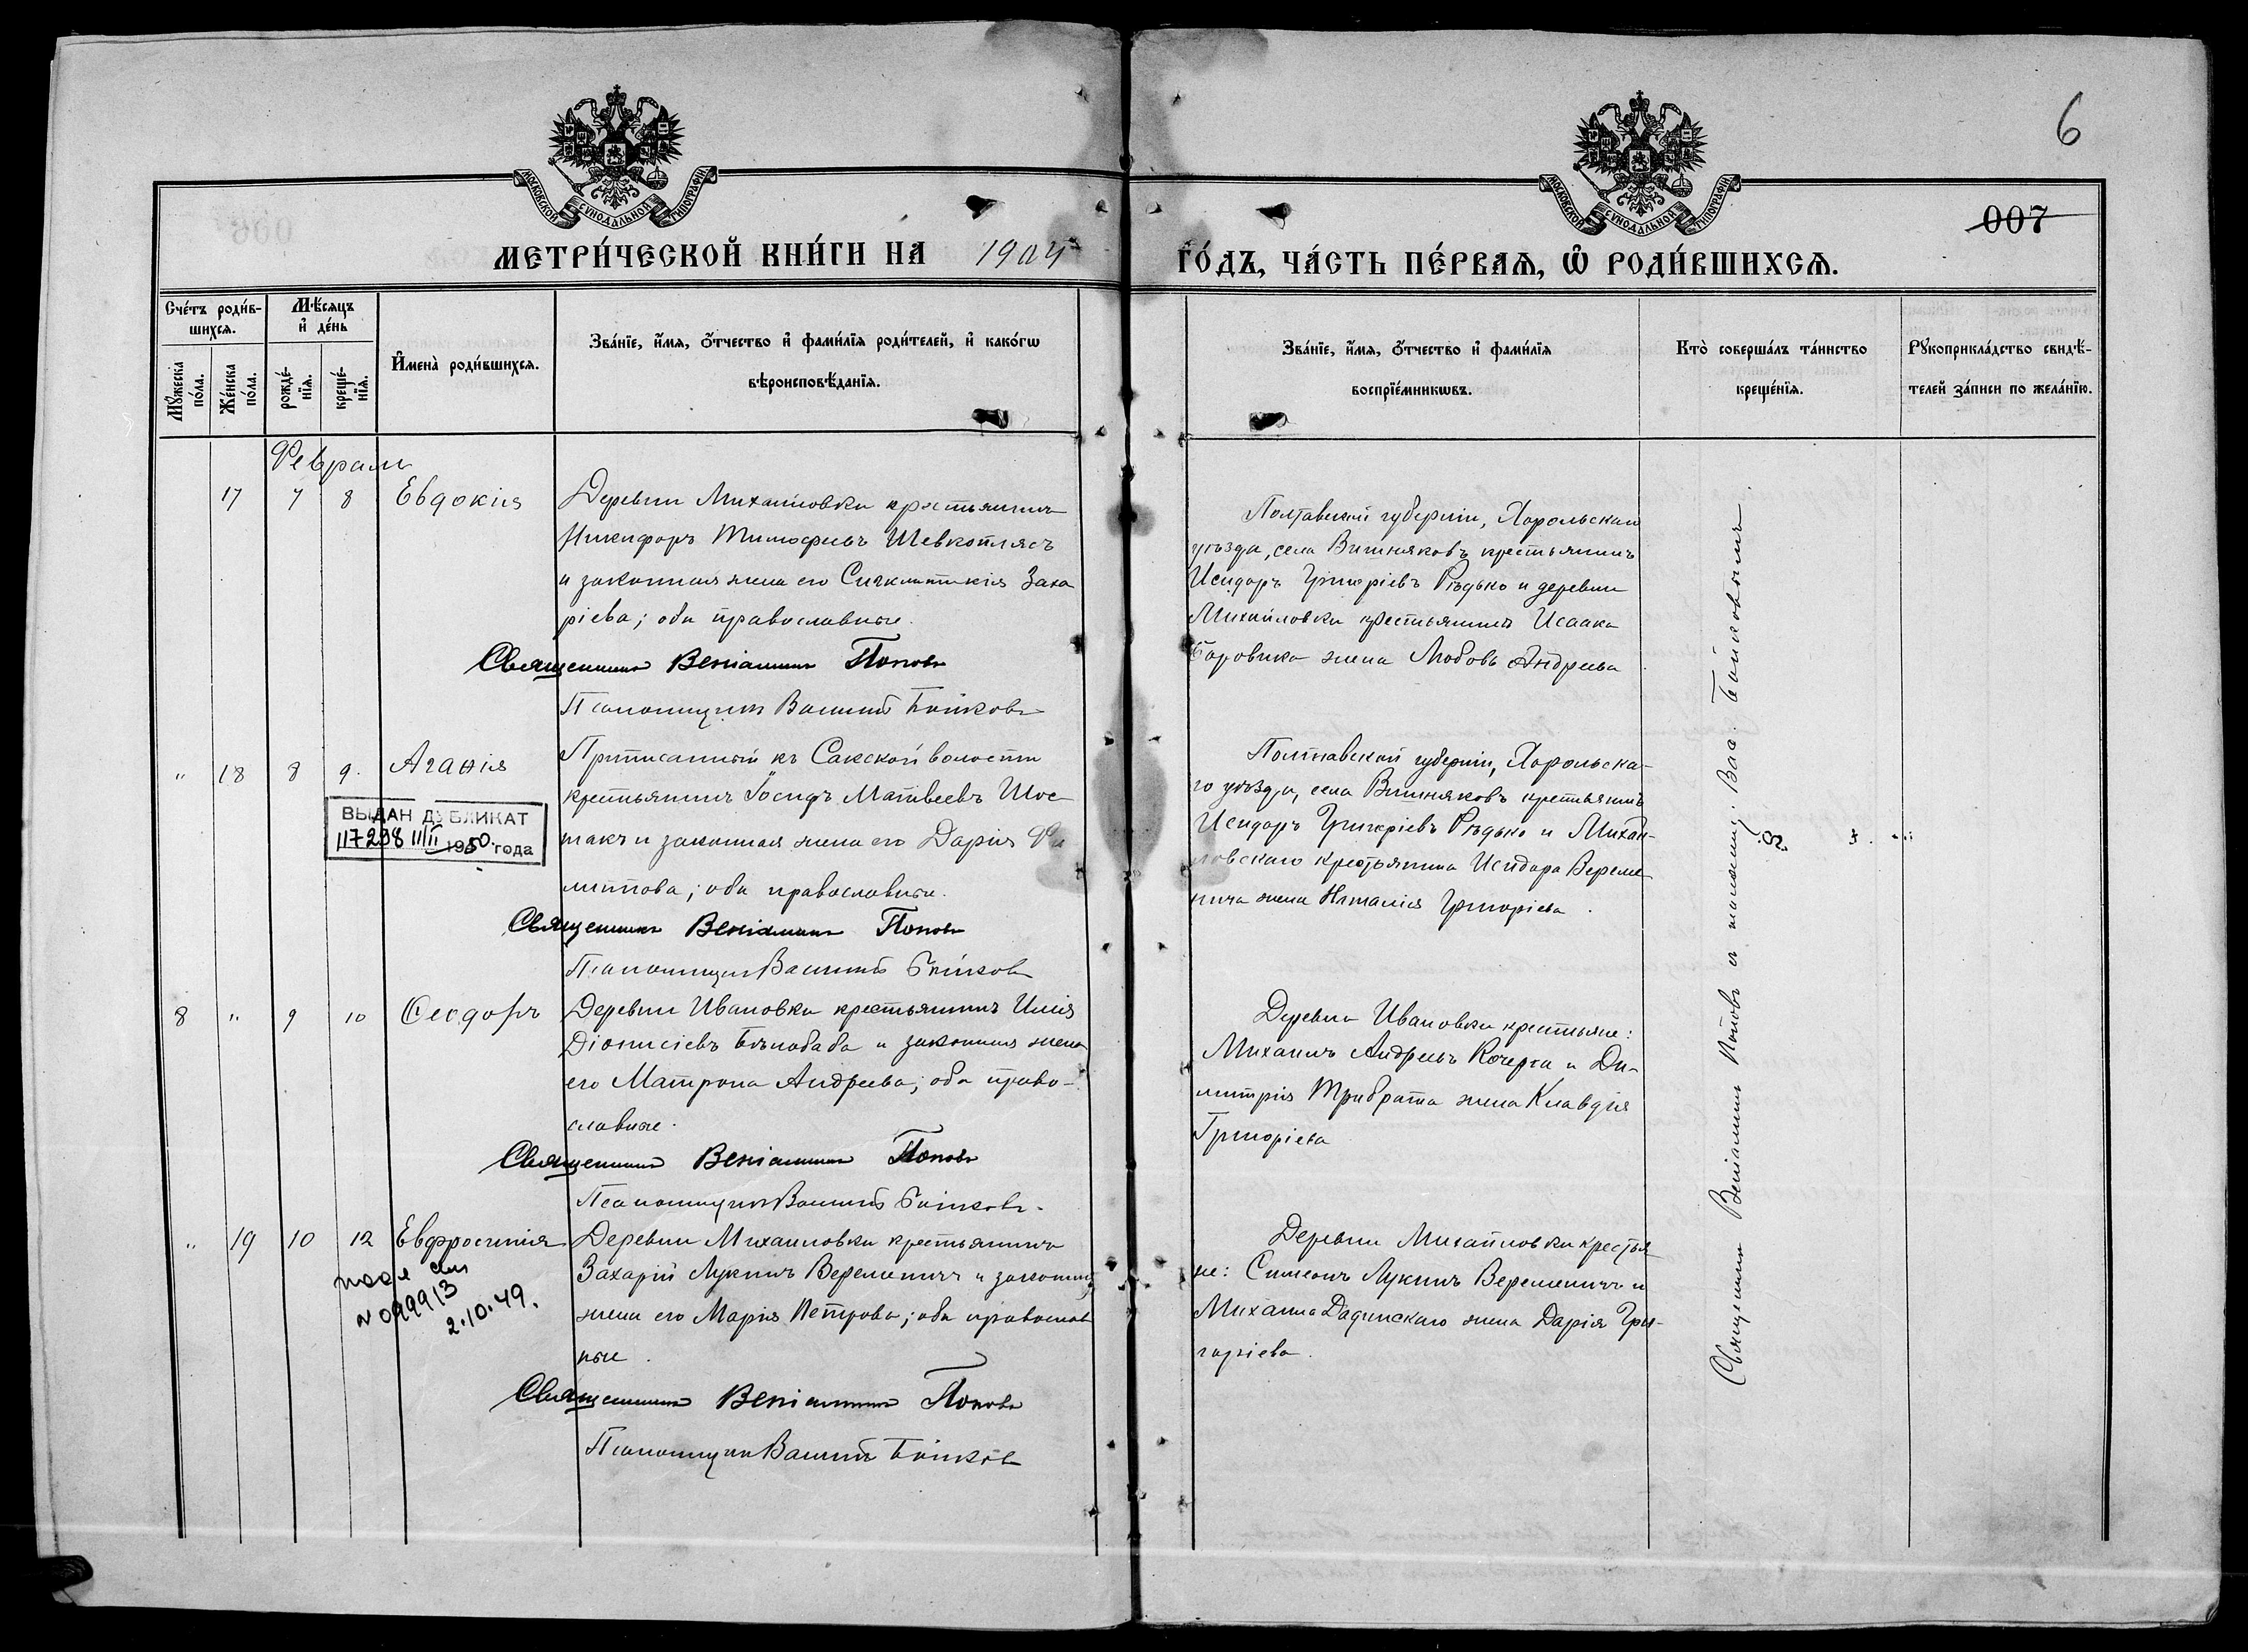 6
007
МОСКОВСКОЙ СѴНОДАЛЬНОЙ ТИПОГРАФІИ
МОСКОВСКОЙ СѴНОДАЛЬНОЙ ТИПОГРАФІИ
МЕТРИ́ЧЕСКОЙ КНИ́ГИ НА 1904
ГО́ДЪ, ЧА́СТЬ ПЕ́РВАѦ, Ѡ҆ РОДИ́ВШИХСѦ.
Сче́тъ роди́в-
шихсѧ.
Мꙋ́жеска по́ла.
Же́нска по́ла.
Мѣ́сѧцъ
и҆ де́нь
рожде́-
нїѧ.
креще́-
нїѧ.
И҆мена̀ роди́вшихсѧ.
Зва́нїе, и҆́мѧ, ѻ҆́тчество и҆ фами́лїѧ роди́телей, и҆ како́гѡ
вѣроисповѣ́данїѧ.
Зва́нїе, и҆́мѧ, ѻ҆́тчество и҆ фами́лїѧ
воспрїе́мникѡвъ.
Кто̀ соверша́лъ та́инство
креще́нїѧ.
Рꙋкоприкла́дство свидѣ́-
телей за́писи по жела́нїю.
Февраль
17 7 8 Евдокія
Деревни Михайловки крестьянинъ
Никифоръ Тимофеевъ Шевкоплясъ
и законная жена его Синклитикія Заха
ріева; оба православные.
Священникъ Веніаминъ Поповъ
Псаломщикъ Василій Бойковъ
Полтавской губерніи, Хорольскаго
уѣзда, села Вишняковъ крестьянинъ
Исидоръ Григоріевъ Рѣдько и деревни
Михайловки крестьянина Исаака
Боровика жена Любовь Андреева
" 18 8 9. Агапія
Приписанный къ Сакской волости
крестьянинъ Іосифъ Матвеевъ Шос
такъ и законная жена его Дарія Фи
липпова; оба православные.
Священникъ Веніаминъ Поповъ
Псаломщикъ Василій Бойковъ
ВЫДАН ДУБЛИКАТ
117298 11/II 1950 года
Полтавской губерніи, Хорольска-
го уѣзда, села Вишняковъ крестьянинъ
Исидоръ Григоріевъ Рѣдько и Михай-
ловскаго крестьянина Исидора Вереме-
нича жена Наталія Григоріева.
8 " 9 10 Ѳеодоръ
Деревни Ивановки крестьянинъ Илія
Діонисіевъ Бѣлобаба и законная жена
его Матрона Андреева; оба право-
славные.
Священникъ Веніаминъ Поповъ
Псаломщикъ Василій Бойковъ.
Деревни Ивановки крестьяне:
Михаилъ Андреевъ Кочерга и Ди-
митрія Трибрата жена Клавдія
Григоріева
" 19 10 12 Евфросинія
N 099913
2.10.49.
Деревни Михайловки крестьянинъ
Захарій Лукинъ Веременичъ и законная
жена его Марія Петрова; оба православ
ные.
Священникъ Веніаминъ Поповъ
Псаломщикъ Василій Бойковъ
Деревни Михайловки крестья-
не: Симеонъ Лукинъ Веременичъ и
Михаила Дадинскаго жена Дарія Гри-
горіева.
Священникъ Веніаминъ Поповъ с псаломщ. Вас. Бойковымъ